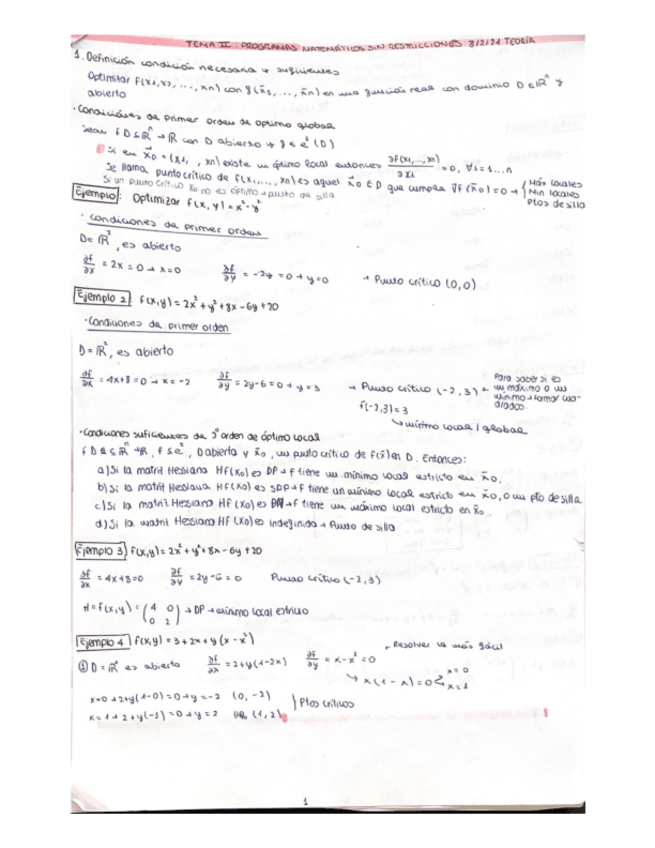 TEMA II: PROGRAMAS MATEMÁTICOS SIN RESTRICCIONES 8/2/21 TEORÍA
1. Definición condición necesaria y suficientes
Optimizar f(x1, x2, ..., xn) con f(x̄1, ..., x̄n) en una función real con dominio D ∈ ℝⁿ y
abierto
· Condiciones de primer orden de óptimo global
Sean f D ⊆ ℝⁿ → ℝ con D abierto y f ∈ e²(D)
Si en x̄0 = (x1, , xn) existe un óptimo local entonces ∂f(x1, ..., xn)/∂xi = 0, ∀i = 1...n
Se llama punto crítico de f(x1, ..., xn) es aquel x̄0 ∈ D que cumpla ∇f(x̄0) = 0 → { Máx locales
Min locales
Ptos de silla
Si un punto crítico x0 no es óptimo → punto de silla
Ejemplo: Optimizar f(x, y) = x² - y²
· Condiciones de primer orden
D = ℝ², es abierto
∂f/∂x = 2x = 0 → x = 0 ∂f/∂y = -2y = 0 → y = 0 → Punto crítico (0,0)
Ejemplo 2: f(x,y) = 2x² + y² + 8x - 6y + 20
· Condiciones de primer orden
D = ℝ², es abierto
∂f/∂x = 4x + 8 = 0 → x = -2 ∂f/∂y = 2y - 6 = 0 → y = 3 → Punto crítico (-2, 3) →
Para saber si es
un máximo o un
mínimo → tomar cua-
drados
f(-2,3) = 3
↳ mínimo local / global
· Condiciones suficientes de 2º orden de óptimo local
f D ⊆ ℝⁿ → ℝ, f ∈ e², D abierto y x̄0, un punto crítico de f(x̄) en D. Entonces:
a) Si la matriz Hessiana Hf(x0) es DP → f tiene un mínimo local estricto en x̄0.
b) Si la matriz Hessiana Hf(x0) es SDP → f tiene un mínimo local estricto en x̄0, o un pto de silla
c) Si la matriz Hessiana Hf(x0) es DN → f tiene un máximo local estricto en x̄0.
d) Si la matriz Hessiana Hf(x0) es indefinida → Punto de silla
Ejemplo 3) f(x,y) = 2x² + y² + 8x - 6y + 20
∂f/∂x = 4x + 8 = 0 ∂f/∂y = 2y - 6 = 0 Punto crítico (-2, 3)
H = f(x,y) = (4 0
0 2) → DP → mínimo local estricto
Ejemplo 4) f(x,y) = 3 + 2x + y(x - x²)
① D = ℝ² es abierto ∂f/∂x = 2 + y(1 - 2x) ∂f/∂y = x - x² = 0 → Resolver la más fácil
↳ x(1 - x) = 0 < x = 0
x = 1
x = 0 → 2 + y(1 - 0) = 0 → y = -2 (0, -2) } Ptos críticos
x = 1 → 2 + y(-1) = 0 → y = 2 (1, 2)
1